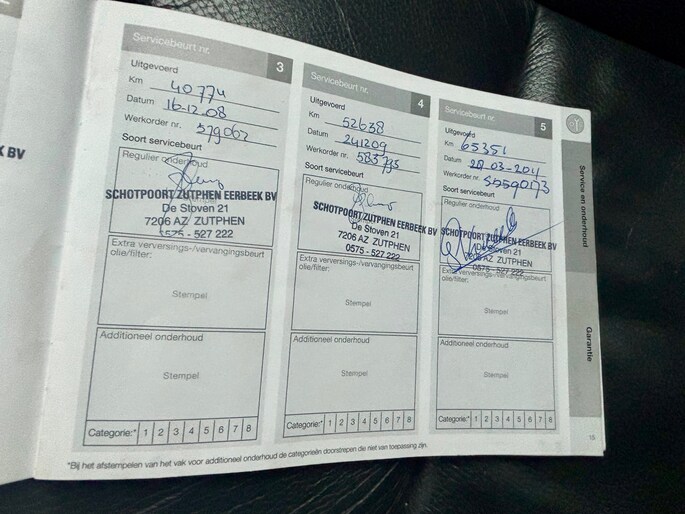 K BV
Servicebeurt nr. 3
Uitgevoerd
Km 40774
Datum 16-12.08
Werkorder nr. 579062
Soort servicebeurt
Regulier onderhoud
SCHOTPOORT ZUTPHEN EERBEEK BV
De Stoven 21
7206 AZ ZUTPHEN
0575 - 527 222
Extra verversings-/vervangingsbeurt
olie/filter:
Stempel
Additioneel onderhoud
Stempel
Categorie:* 1 2 3 4 5 6 7 8
Servicebeurt nr. 4
Uitgevoerd
Km 52638
Datum 241209
Werkorder nr. 583735
Soort servicebeurt
Regulier onderhoud
SCHOTPOORT ZUTPHEN EERBEEK BV
De Stoven 21
7206 AZ ZUTPHEN
0575 - 527 222
Extra verversings-/vervangingsbeurt
olie/filter:
Stempel
Additioneel onderhoud
Stempel
Categorie:* 1 2 3 4 5 6 7 8
Servicebeurt nr. 5
Uitgevoerd
Km 65351
Datum 28-03-2011
Werkorder nr.
Soort servicebeurt
Regulier onderhoud
SCHOTPOORT ZUTPHEN EERBEEK BV
De Stoven 21
7206 AZ ZUTPHEN
0575 - 527 222
Extra verversings-/vervangingsbeurt
olie/filter:
Stempel
Additioneel onderhoud
Stempel
Categorie:* 1 2 3 4 5 6 7 8
*Bij het afstempelen van het vak voor additioneel onderhoud de categorieën doorstrepen die niet van toepassing zijn.
Service en onderhoud
Garantie
15